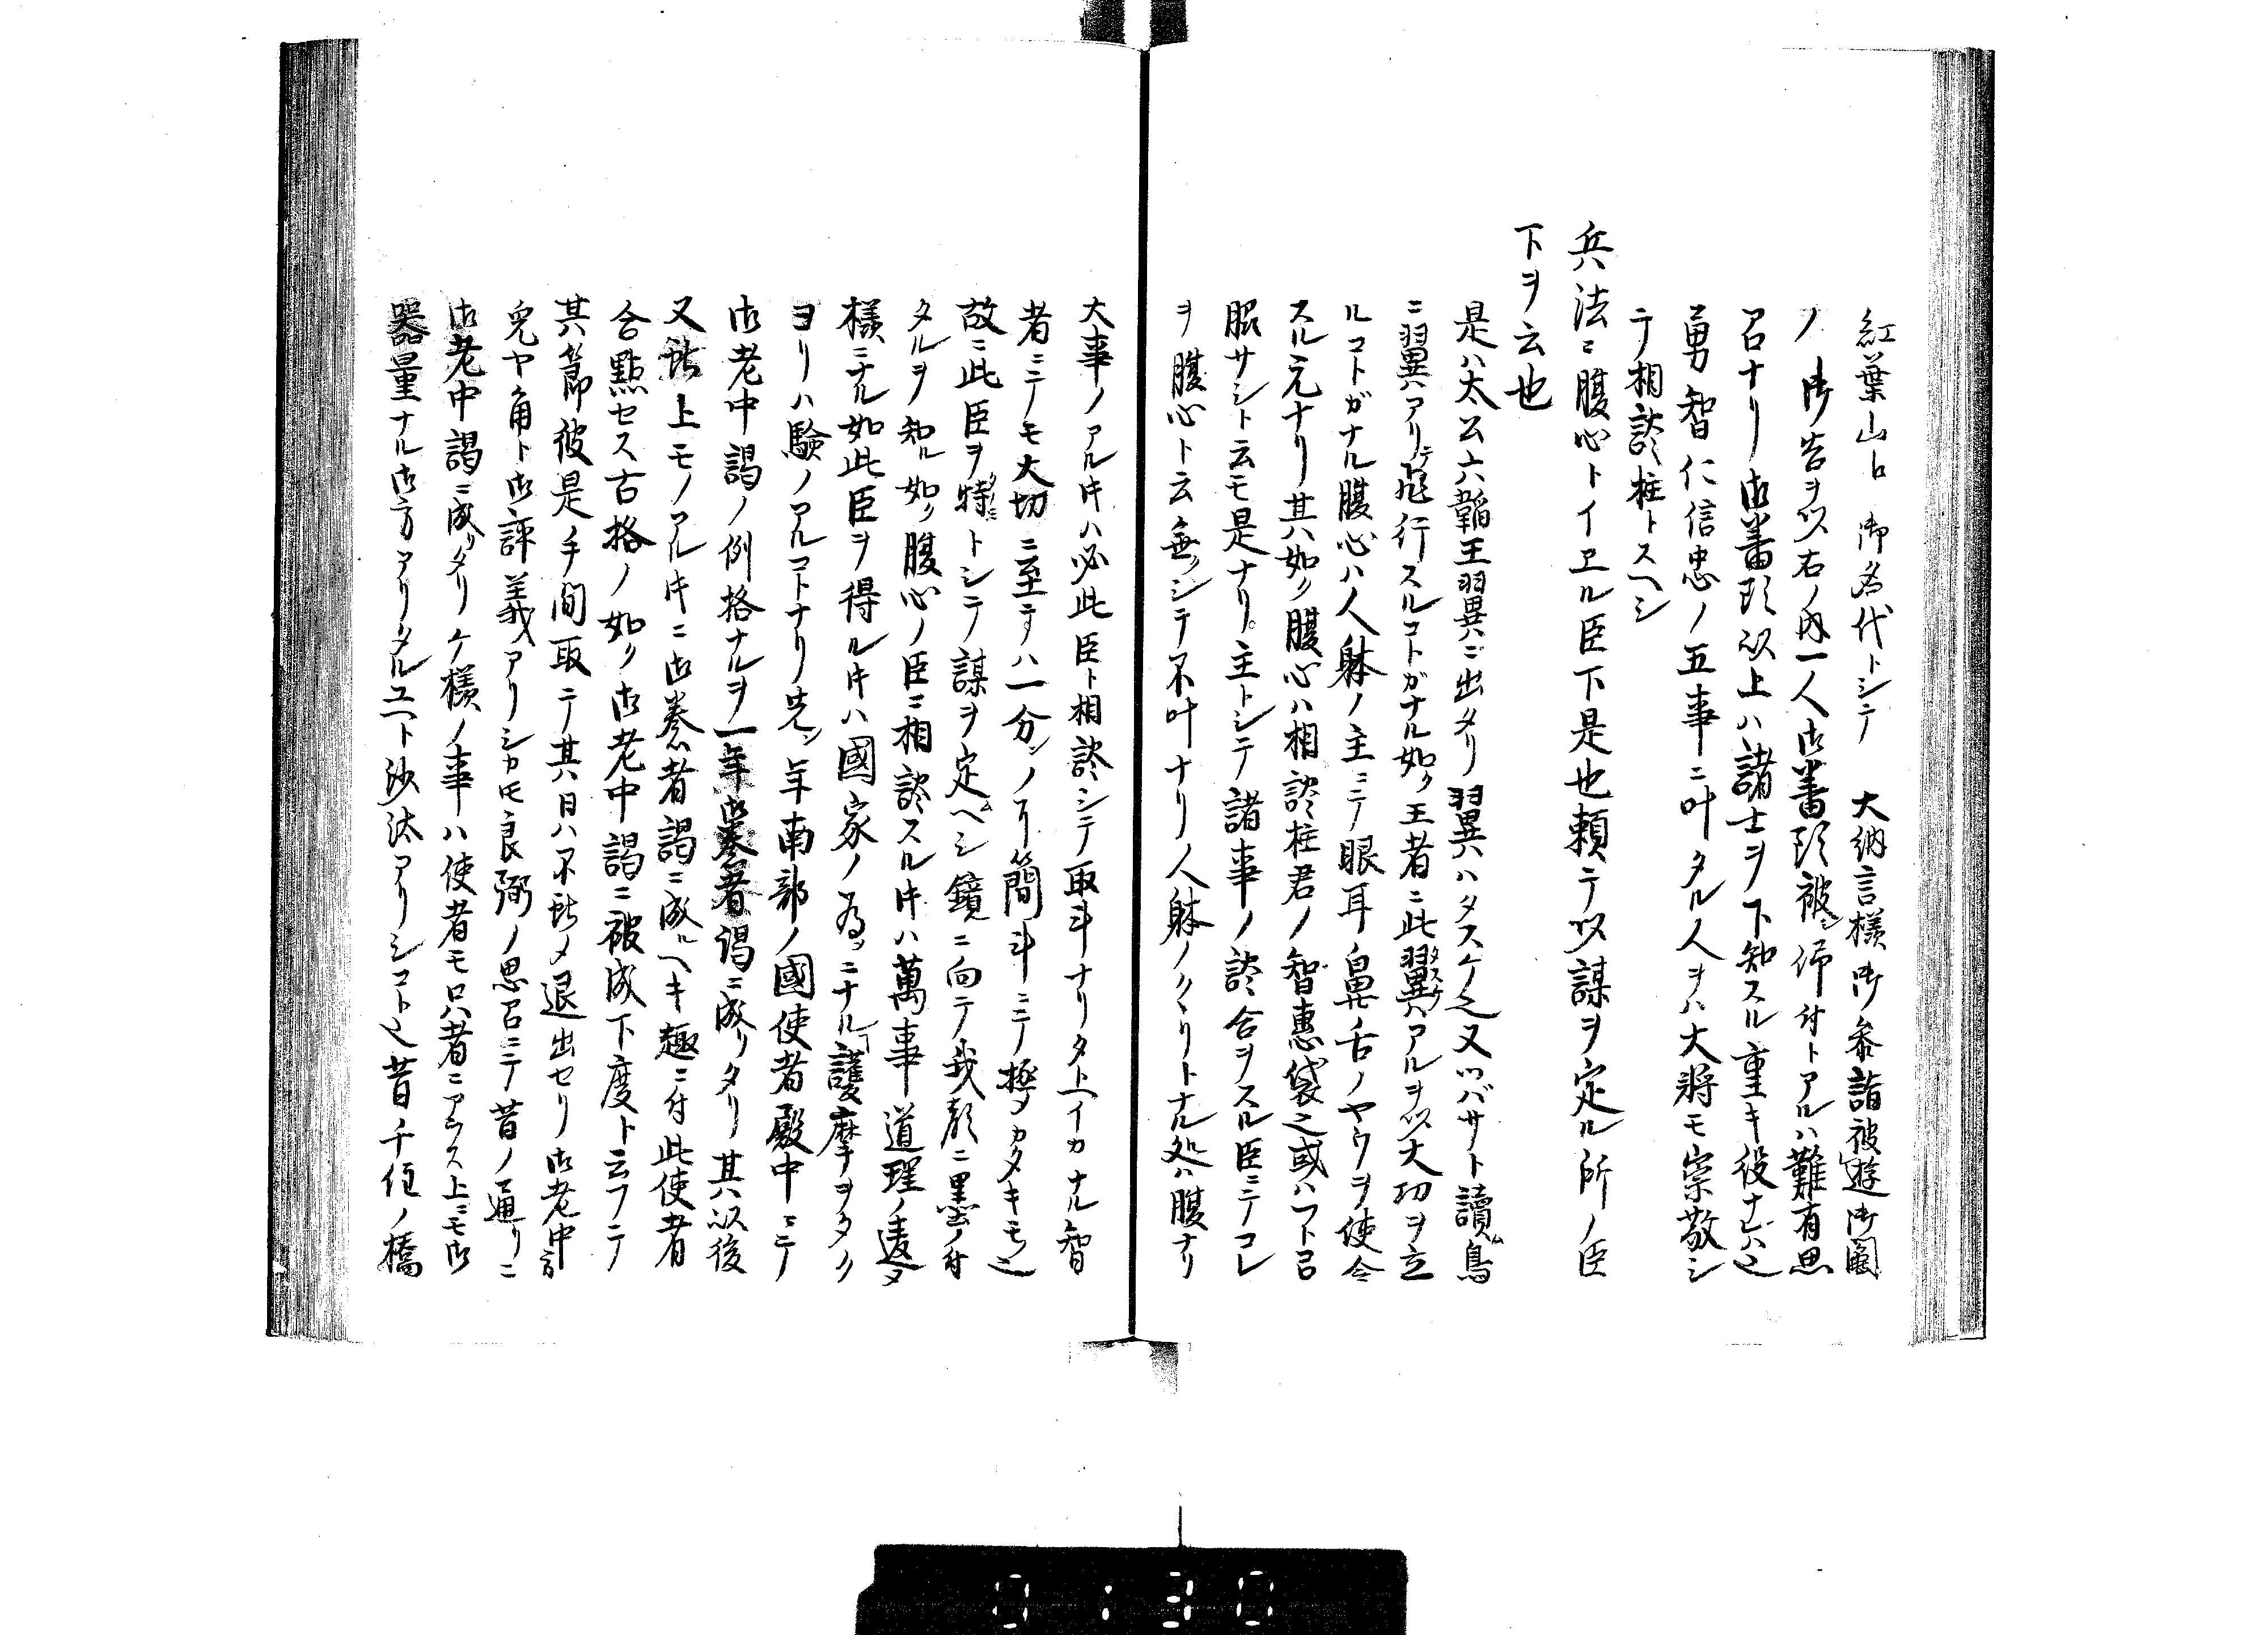 紅葉山ヒ 御名代トシテ 大納言様御參詣被遊御圖
ノ御告ヲ以右ノ内一人御番頭被シ仰付トアルハ難有思
召ナリ御番頭以上ハ諸士ヲ下知スル重キ役ナレハ之
勇智仁信忠ノ五事ニ叶タル人ヲハ大将モ崇敬シ
テ相談柱トスヘシ
兵法ニ腹心トイヱル臣下是也頼テ以謀ヲ定ル所ノ臣
下ヲ云也
是ハ太公六韜王翼ニ出タリ翼ハタスケ之又ツバサト讀ム鳥
ニ翼アリテ飛行スルコトガナル如ク王者ニ此翼タスケアルヲ以大功ヲ立
ルコトガナル腹心ハ人躰ノ主ニテ眼耳鼻舌ノヤウヲ使令
スル元ナリ其如ク腹心ハ相談柱君ノ智惠袋之或ハフトコロ
脇サシト云モ是ナリ主トシテ諸事ノ談合ヲスル臣ニテコレ
ヲ腹心ト云無ッシテ不叶ナリノ人躰ノクヽリトナル処ハ腹ナリ
大事ノアル片ハ必此臣ト相談シテ取斗ナリタトヘイカナル智
者ニテモ大切ニ至テハ一分ンノ了簡斗ニテ極メカタキモノ之
故ニ此臣ヲ特タノミトシテ謀ヲ定ムヘシ鏡ニ向テ我顔ニ墨ノ付
タルヲ知ル如ク腹心ノ臣ニ相談スル片ハ萬事道理ノ違ヌ
様ニナル如此臣ヲ得ル片ハ國家ノ為ニナルヿ護摩ヲタク
ヨリハ験ノアルコトナリ先ン年南部ノ國使者殿中ニテ
御老中謁ノ例格ナルヲ一年御奏者謁ニ成リタリ其以後
又献上モノアル片ニ御奏者謁ニ成ルヘキ趣ニ付此使者
合點セス古格ノ如ク御老中謁ニ被成下度ト云フニテ
其節彼是手間取テ其日ハ不献メ退出セリ御老中方
兎ヤ角ト御評義アリシカ𪜈良弼ノ思召ニテ昔ノ通リニ
御老中謁ニ成リタリケ様ノ事ハ使者モ只者ニアラス上ニモ御
器量ナル御方アリタルユヘト沙汰アリシコト之昔千住ノ橋